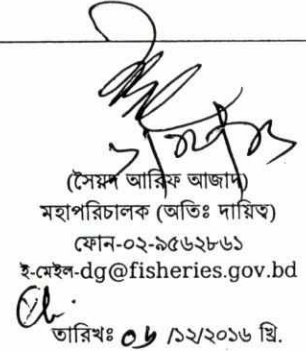 (সৈয়দ আরিফ আজাদ)
মহাপরিচালক (অতিঃ দায়িত্ব)
ফোন-০২-৯৫৬২৮৬১
ই-মেইল-dg@fisheries.gov.bd
তারিখঃ ০৮ /১২/২০১৬ খ্রি.